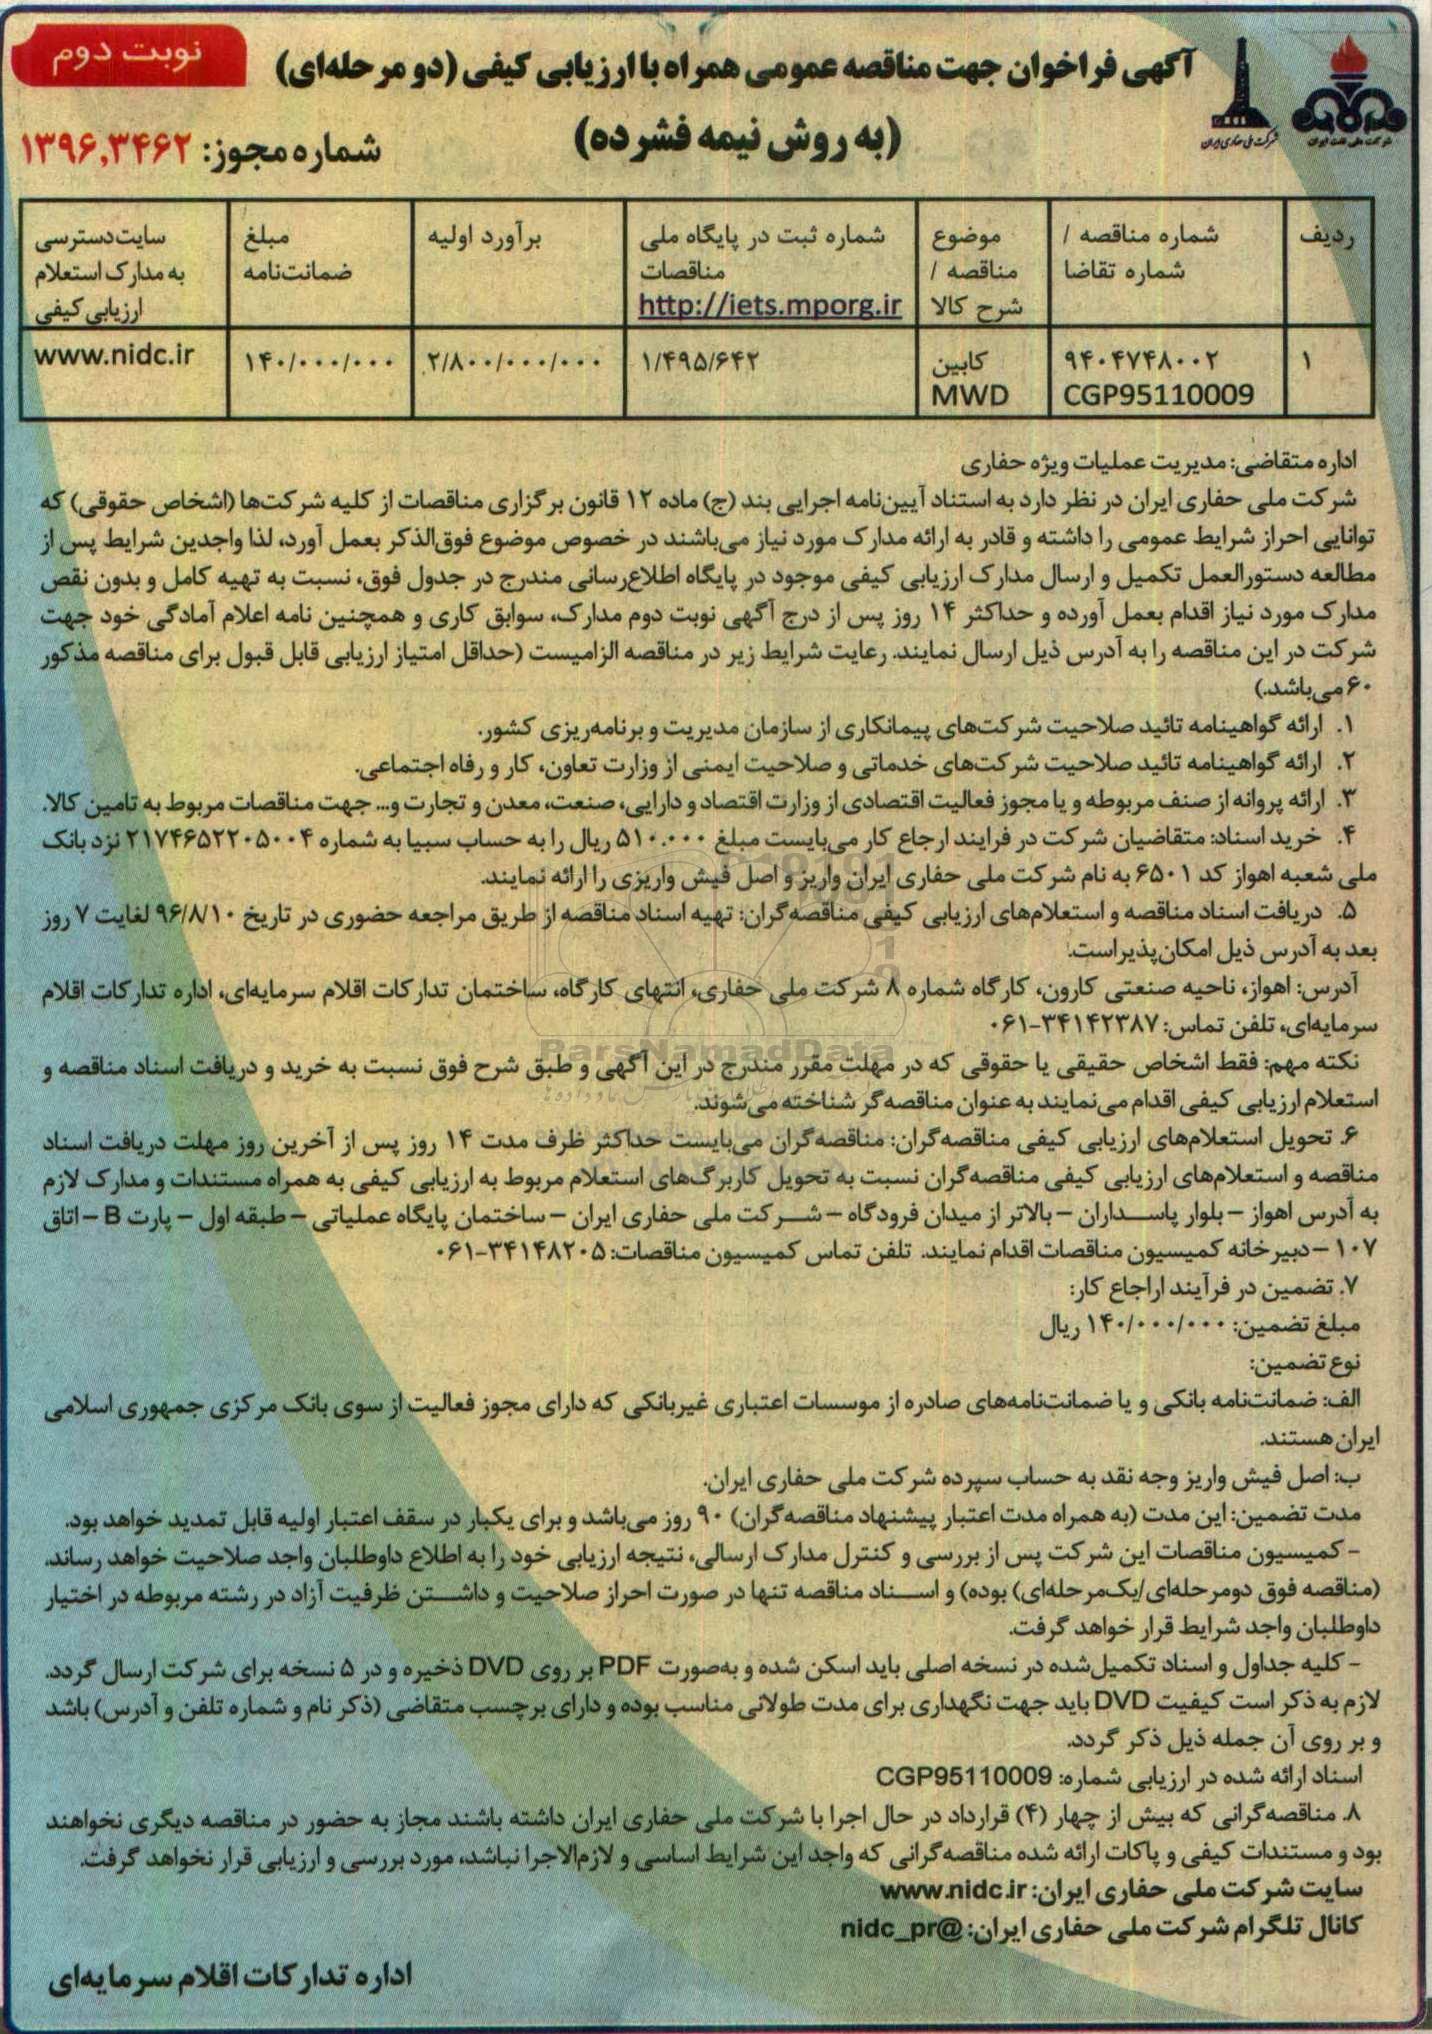 نوبت دوم
آگهی فراخوان جهت مناقصه عمومی همراه با ارزیابی کیفی (دو مرحله‌ای)
(به روش نیمه فشرده)
شماره مجوز: ۱۳۹۶,۳۴۶۲
شرکت ملی حفاری ایران
شرکت ملی نفت ایران
ردیف
شماره مناقصه / شماره تقاضا
موضوع مناقصه / شرح کالا
شماره ثبت در پایگاه ملی مناقصات http://iets.mporg.ir
برآورد اولیه
مبلغ ضمانت‌نامه
سایت دسترسی به مدارک استعلام ارزیابی کیفی
۱
۹۴۰۴۷۴۸۰۰۲ CGP95110009
کابین MWD
۱/۴۹۵/۶۴۲
۲/۸۰۰/۰۰۰/۰۰۰
۱۴۰/۰۰۰/۰۰۰
www.nidc.ir
اداره متقاضی: مدیریت عملیات ویژه حفاری
شرکت ملی حفاری ایران در نظر دارد به استناد آیین‌نامه اجرایی بند (ج) ماده ۱۲ قانون برگزاری مناقصات از کلیه شرکت‌ها (اشخاص حقوقی) که
توانایی احراز شرایط عمومی را داشته و قادر به ارائه مدارک مورد نیاز می‌باشند در خصوص موضوع فوق‌الذکر بعمل آورد، لذا واجدین شرایط پس از
مطالعه دستورالعمل تکمیل و ارسال مدارک ارزیابی کیفی موجود در پایگاه اطلاع‌رسانی مندرج در جدول فوق، نسبت به تهیه کامل و بدون نقص
مدارک مورد نیاز اقدام بعمل آورده و حداکثر ۱۴ روز پس از درج آگهی نوبت دوم مدارک، سوابق کاری و همچنین نامه اعلام آمادگی خود جهت
شرکت در این مناقصه را به آدرس ذیل ارسال نمایند. رعایت شرایط زیر در مناقصه الزامیست (حداقل امتیاز ارزیابی قابل قبول برای مناقصه مذکور
۶۰ می‌باشد.)
۱. ارائه گواهینامه تائید صلاحیت شرکت‌های پیمانکاری از سازمان مدیریت و برنامه‌ریزی کشور.
۲. ارائه گواهینامه تائید صلاحیت شرکت‌های خدماتی و صلاحیت ایمنی از وزارت تعاون، کار و رفاه اجتماعی.
۳. ارائه پروانه از صنف مربوطه و یا مجوز فعالیت اقتصادی از وزارت اقتصاد و دارایی، صنعت، معدن و تجارت و... جهت مناقصات مربوط به تامین کالا.
۴. خرید اسناد: متقاضیان شرکت در فرایند ارجاع کار می‌بایست مبلغ ۵۱۰.۰۰۰ ریال را به حساب سیبا به شماره ۲۱۷۴۶۵۲۲۰۵۰۰۴ نزد بانک
ملی شعبه اهواز کد ۶۵۰۱ به نام شرکت ملی حفاری ایران واریز و اصل فیش واریزی را ارائه نمایند.
۵. دریافت اسناد مناقصه و استعلام‌های ارزیابی کیفی مناقصه‌گران: تهیه اسناد مناقصه از طریق مراجعه حضوری در تاریخ ۹۶/۸/۱۰ لغایت ۷ روز
بعد به آدرس ذیل امکان‌پذیر است.
آدرس: اهواز، ناحیه صنعتی کارون، کارگاه شماره ۸ شرکت ملی حفاری، انتهای کارگاه، ساختمان تدارکات اقلام سرمایه‌ای، اداره تدارکات اقلام
سرمایه‌ای، تلفن تماس: ۳۴۱۴۲۳۸۷-۰۶۱
ParsNamadData
نکته مهم: فقط اشخاص حقیقی یا حقوقی که در مهلت مقرر مندرج در این آگهی و طبق شرح فوق نسبت به خرید و دریافت اسناد مناقصه و
استعلام ارزیابی کیفی اقدام می‌نمایند به عنوان مناقصه‌گر شناخته می‌شوند.
۶. تحویل استعلام‌های ارزیابی کیفی مناقصه‌گران: مناقصه‌گران می‌بایست حداکثر ظرف مدت ۱۴ روز پس از آخرین روز مهلت دریافت اسناد
مناقصه و استعلام‌های ارزیابی کیفی مناقصه‌گران نسبت به تحویل کاربرگ‌های استعلام مربوط به ارزیابی کیفی به همراه مستندات و مدارک لازم
به آدرس اهواز – بلوار پاسداران – بالاتر از میدان فرودگاه – شرکت ملی حفاری ایران – ساختمان پایگاه عملیاتی – طبقه اول – پارت B – اتاق
۱۰۷ – دبیرخانه کمیسیون مناقصات اقدام نمایند. تلفن تماس کمیسیون مناقصات: ۳۴۱۴۸۲۰۵-۰۶۱
۷. تضمین در فرآیند اراجاع کار:
مبلغ تضمین: ۱۴۰/۰۰۰/۰۰۰ ریال
نوع تضمین:
الف: ضمانت‌نامه بانکی و یا ضمانت‌نامه‌های صادره از موسسات اعتباری غیربانکی که دارای مجوز فعالیت از سوی بانک مرکزی جمهوری اسلامی
ایران هستند.
ب: اصل فیش واریز وجه نقد به حساب سپرده شرکت ملی حفاری ایران.
مدت تضمین: این مدت (به همراه مدت اعتبار پیشنهاد مناقصه‌گران) ۹۰ روز می‌باشد و برای یکبار در سقف اعتبار اولیه قابل تمدید خواهد بود.
– کمیسیون مناقصات این شرکت پس از بررسی و کنترل مدارک ارسالی، نتیجه ارزیابی خود را به اطلاع داوطلبان واجد صلاحیت خواهد رساند.
(مناقصه فوق دومرحله‌ای/یک‌مرحله‌ای) بوده) و اسناد مناقصه تنها در صورت احراز صلاحیت و داشتن ظرفیت آزاد در رشته مربوطه در اختیار
داوطلبان واجد شرایط قرار خواهد گرفت.
– کلیه جداول و اسناد تکمیل‌شده در نسخه اصلی باید اسکن شده و به‌صورت PDF بر روی DVD ذخیره و در ۵ نسخه برای شرکت ارسال گردد.
لازم به ذکر است کیفیت DVD باید جهت نگهداری برای مدت طولانی مناسب بوده و دارای برچسب متقاضی (ذکر نام و شماره تلفن و آدرس) باشد
و بر روی آن جمله ذیل ذکر گردد.
اسناد ارائه شده در ارزیابی شماره: CGP95110009
۸. مناقصه‌گرانی که بیش از چهار (۴) قرارداد در حال اجرا با شرکت ملی حفاری ایران داشته باشند مجاز به حضور در مناقصه دیگری نخواهند
بود و مستندات کیفی و پاکات ارائه شده مناقصه‌گرانی که واجد این شرایط اساسی و لازم‌الاجرا نباشد، مورد بررسی و ارزیابی قرار نخواهد گرفت.
سایت شرکت ملی حفاری ایران: www.nidc.ir
کانال تلگرام شرکت ملی حفاری ایران: @nidc_pr
اداره تدارکات اقلام سرمایه‌ای